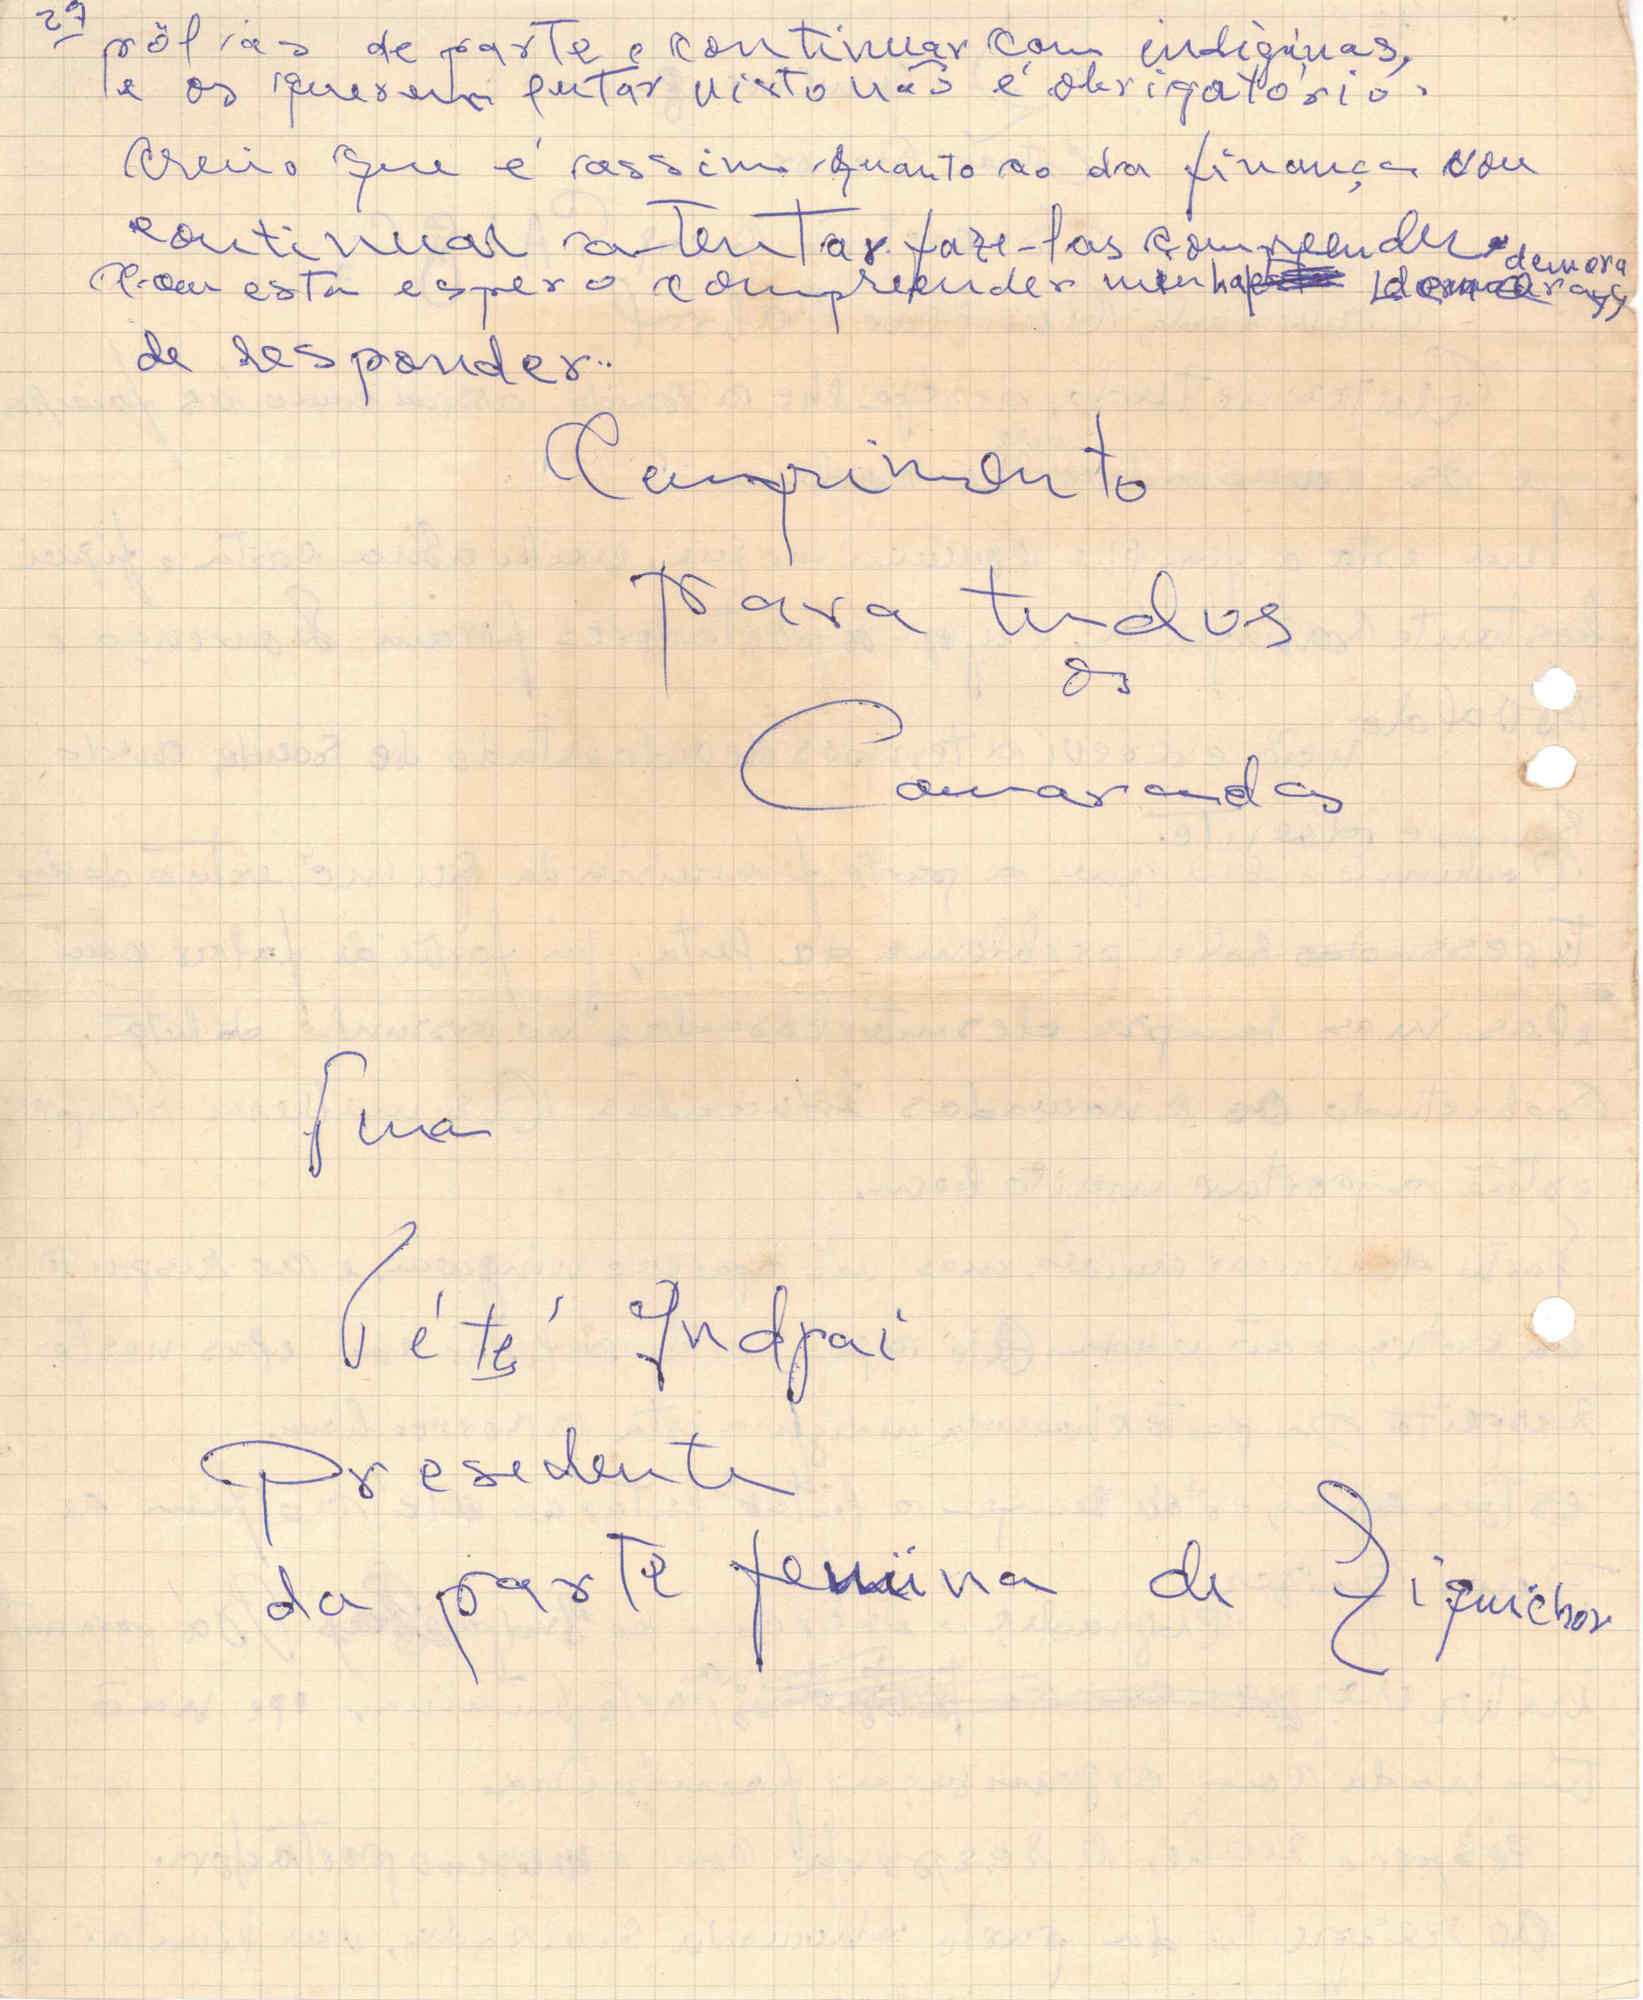 2º
põl ias de parte e continuar com indiginas,
e os querem lutar visto não é obrigatório.
Creio que é assim quanto ao da finança vou
continuar a tentar faze-las compreender.
Com esta espero compreender minha demora
de responder..
Cumprimento
para tudos
os
Camaradas
Tété Indjai
Presedente
da parte femina de Ziguichor